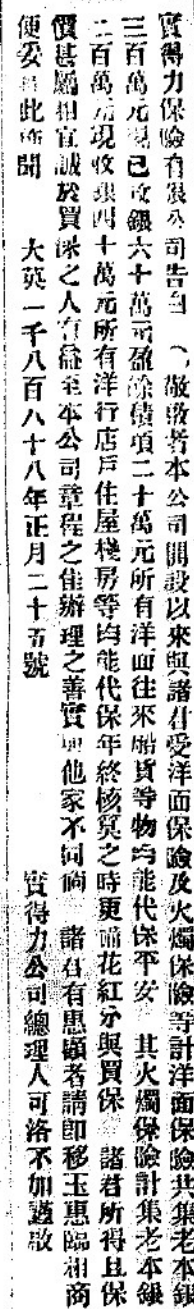 實得力保險有限公司告白　敬啟者本公司開設以來與諸君受洋面保險及火燭保險等計洋面保險共集老本銀
三百萬元現已收銀六十萬元盈餘積項二十萬元所有洋面往來船貨等物均能代保平安　其火燭保險計集老本銀
二百萬元現收銀四十萬元所有洋行店戶住屋棧房等均能代保年終核算之時更 花紅分與買保　諸君所得且保
價甚屬相宜誠於買保之人有益至本公司章程之佳辦理之善實與他家不同倘　諸君有惠顧者請即移玉惠臨相商
便妥 此 聞　　大英一千八百八十八年正月二十五號　　　　實得力公司總理人可洛不加謹啟